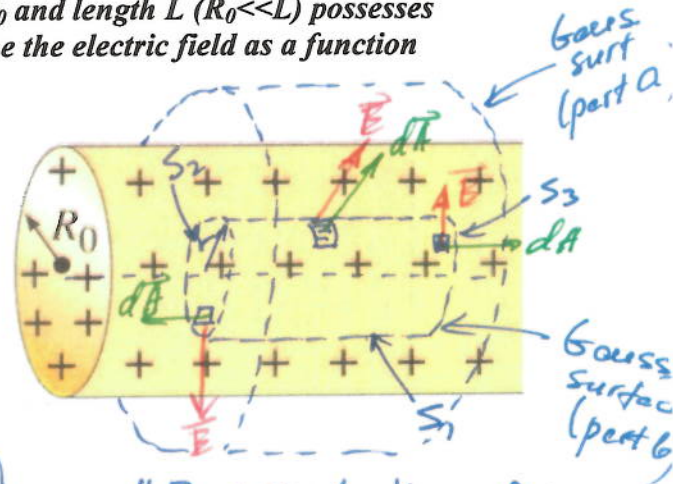 0 and length L (R0<<L) possesses
e the electric field as a function
Gauss
surf
(part a)
E
dA
S2
E
S3
R0
dA
dA
Gauss
surfac
(part b)
E
S1